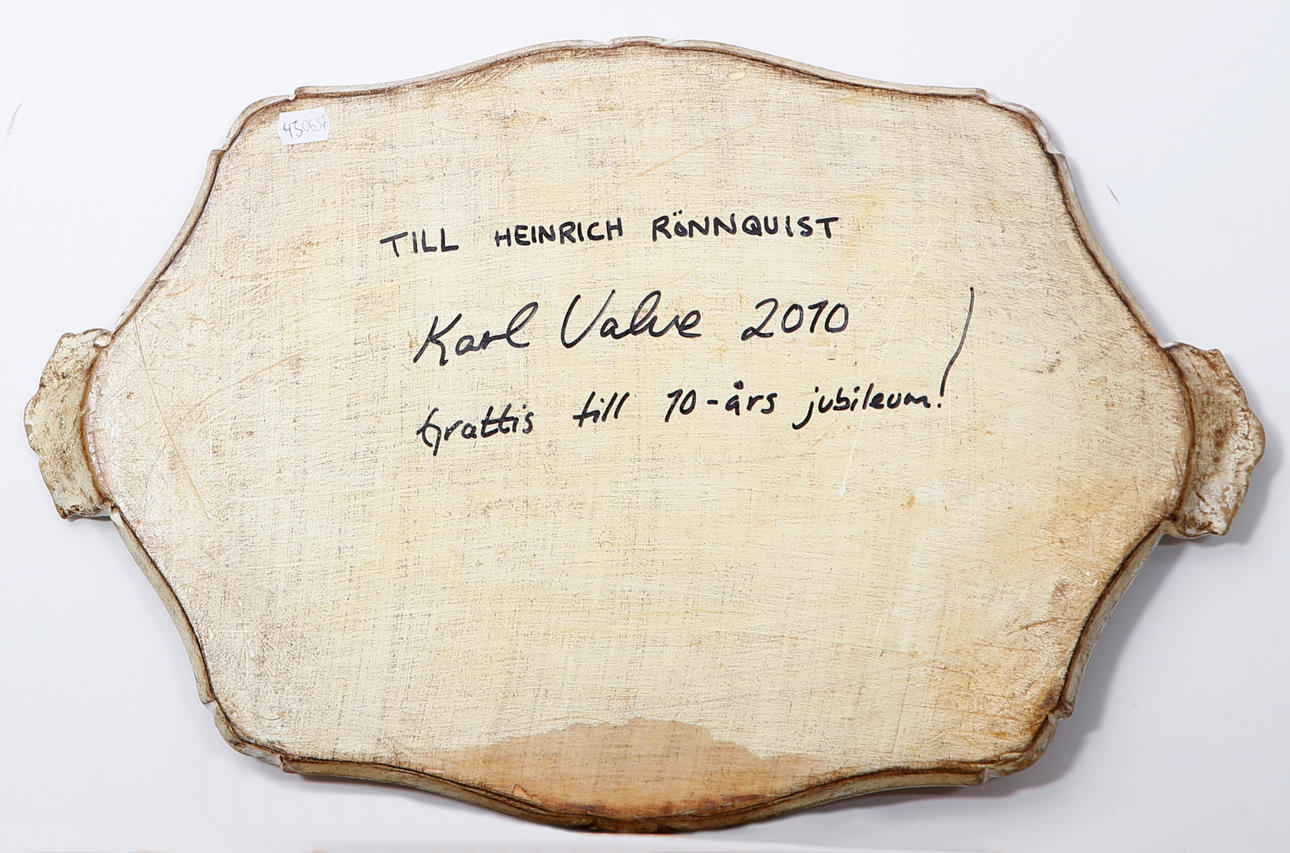 430657
TILL HEINRICH RÖNNQUIST
Karl Valve 2010
Grattis till 10-års jubileum!